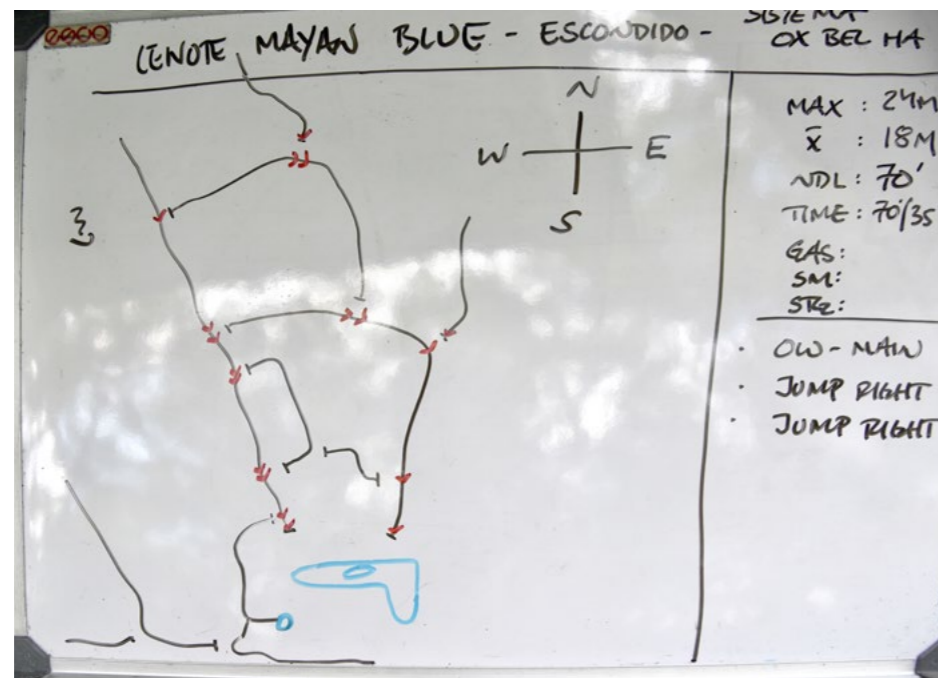 CENOTE MAYAN BLUE - ESCONDIDO -
SISTEMA
OX BEL HA
N
W E
S
MAX : 24M
X̄ : 18M
NDL : 70'
TIME : 70'/35
GAS:
SM:
OW - MAIN
JUMP RIGHT
JUMP RIGHT